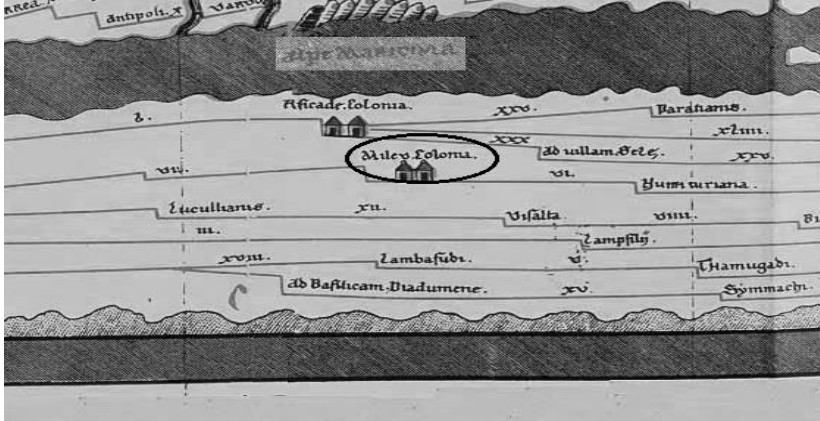 antipoli. x
alpe Maritima
Aficade. Colonia.
xxv.
Paratianis.
x.
xliii.
Milev. Colonia.
xxx
ad uillam. Sele.
xxv.
vii.
vi.
Numituriana.
Lucullianis.
xii.
Visalta
viiii.
iii.
Lampsilij.
xviii.
Lambafudi.
v.
Thamugadi.
ad Basilicam. Diadumene.
xv.
Symmachi.